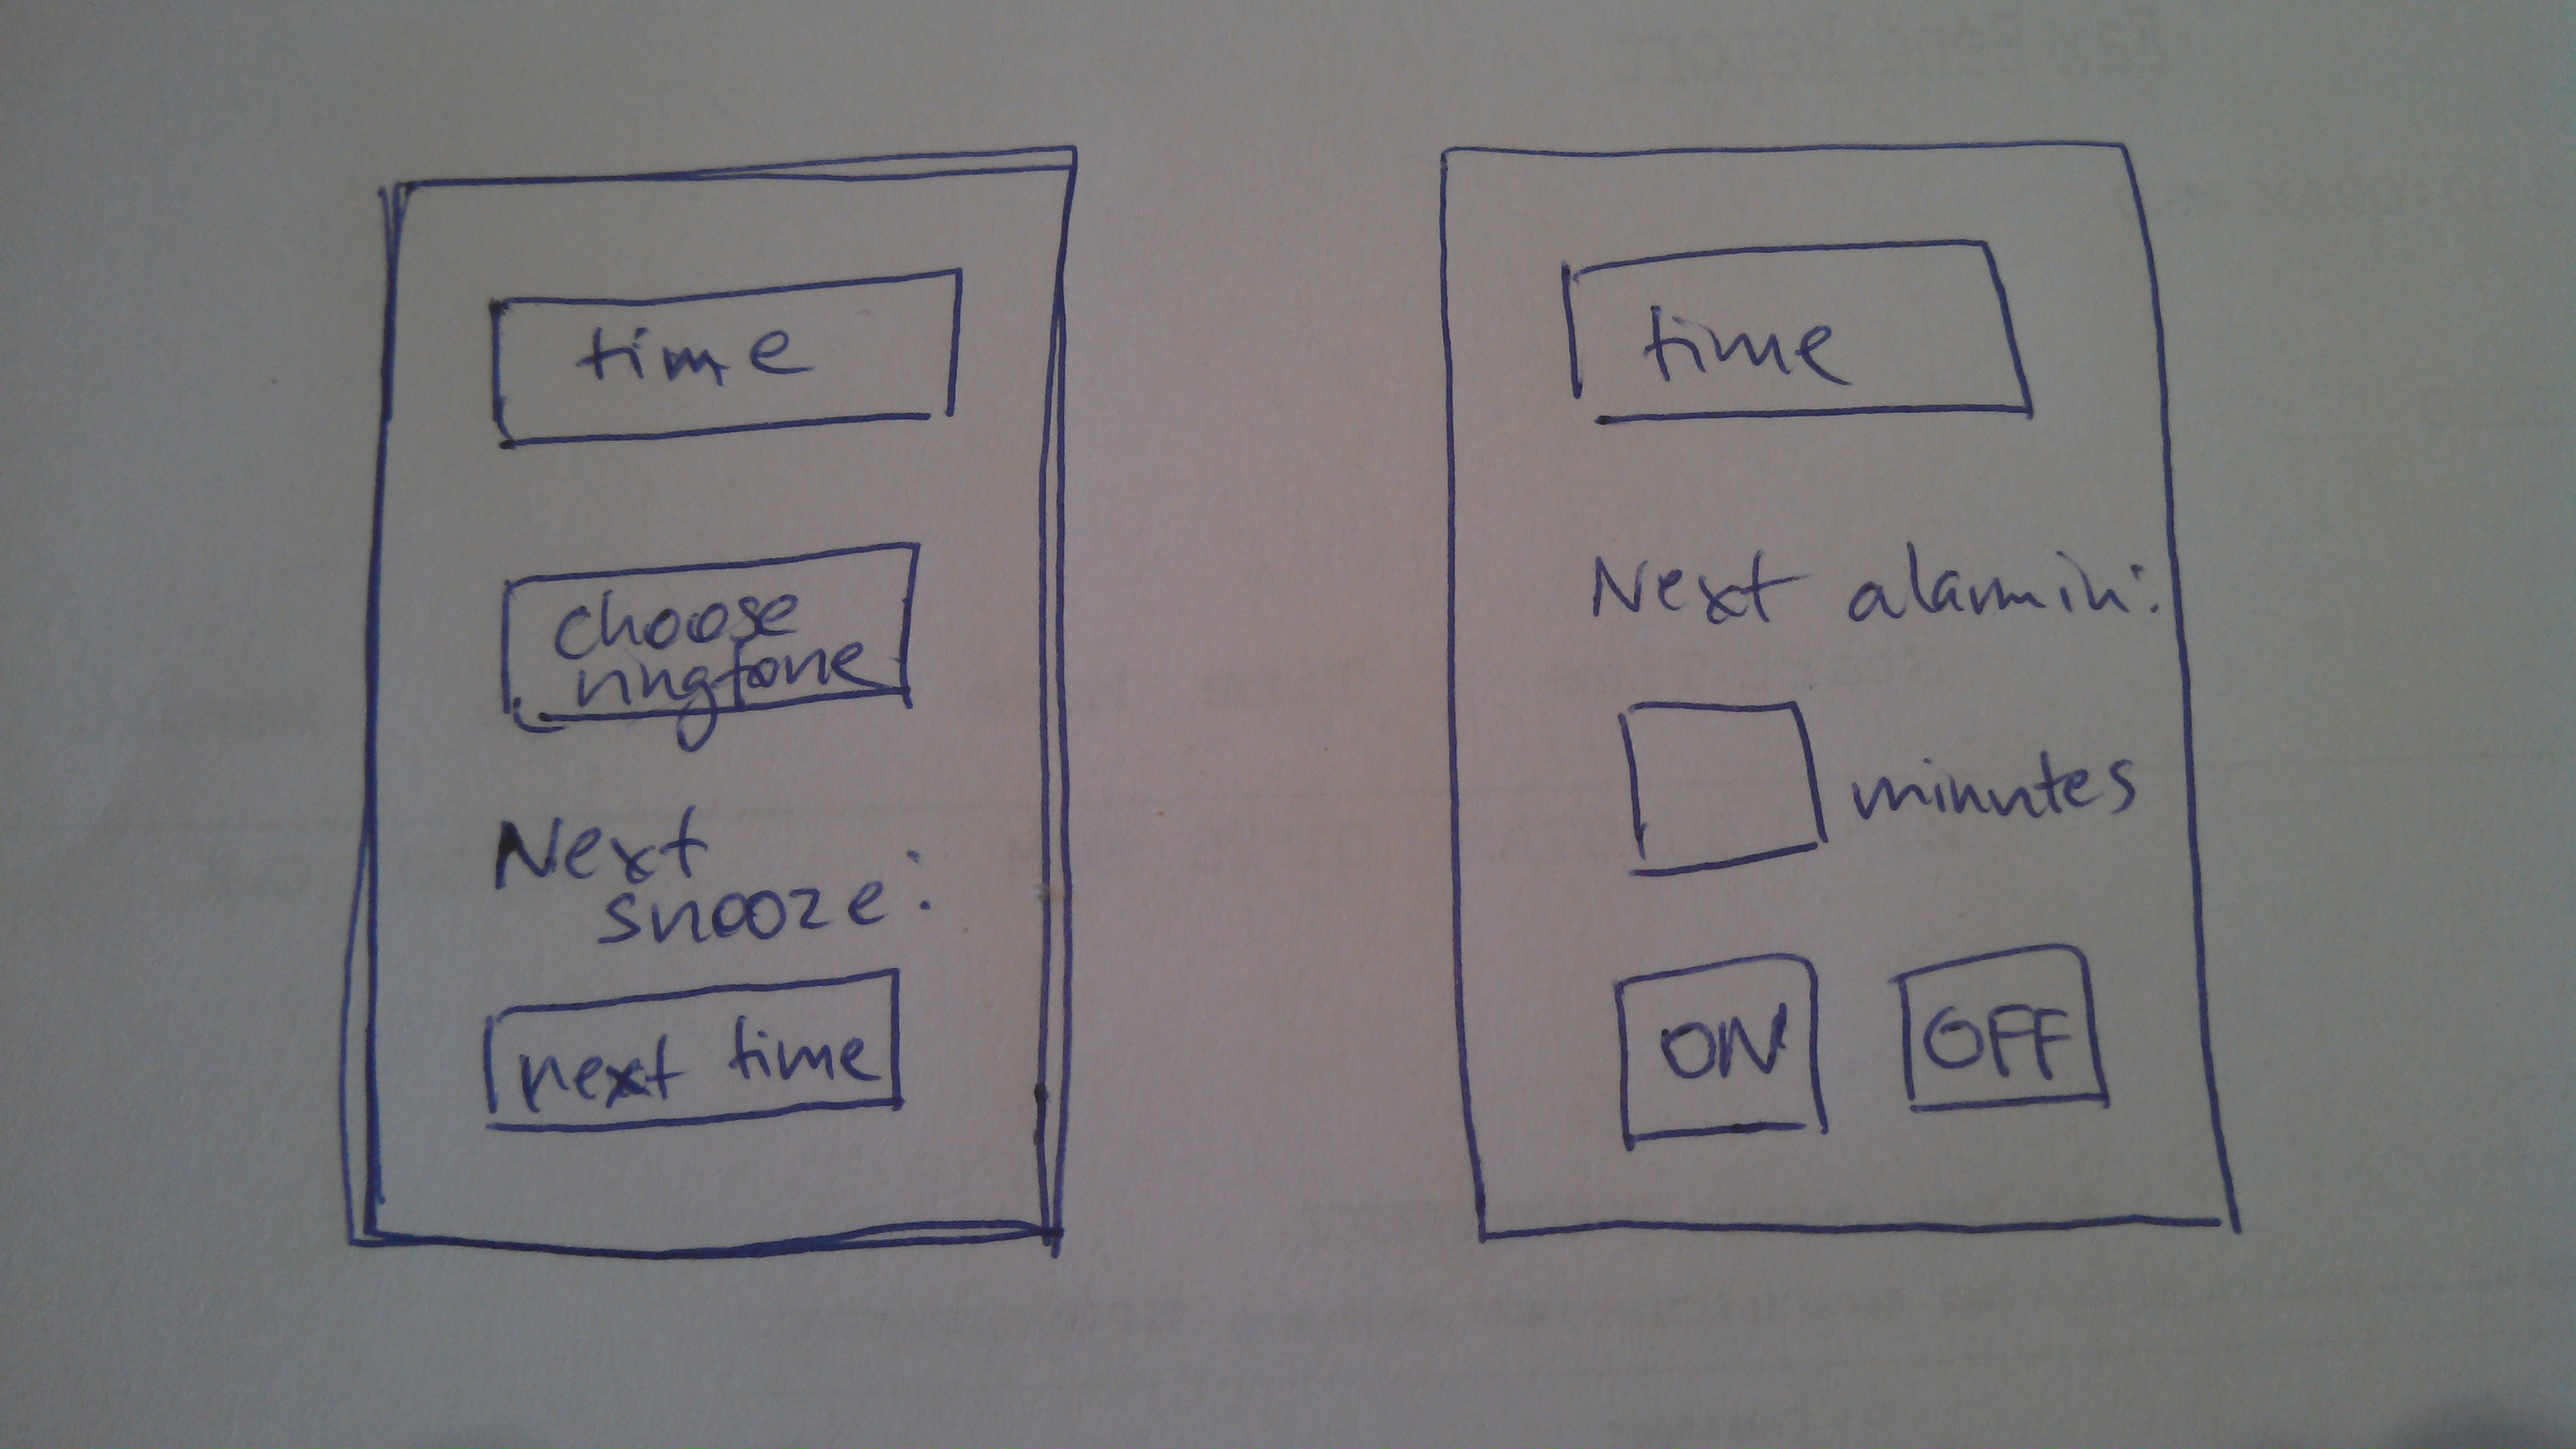 time
choose
ringtone
Next
snooze:
next time
time
Next alarm in:
minutes
ON OFF